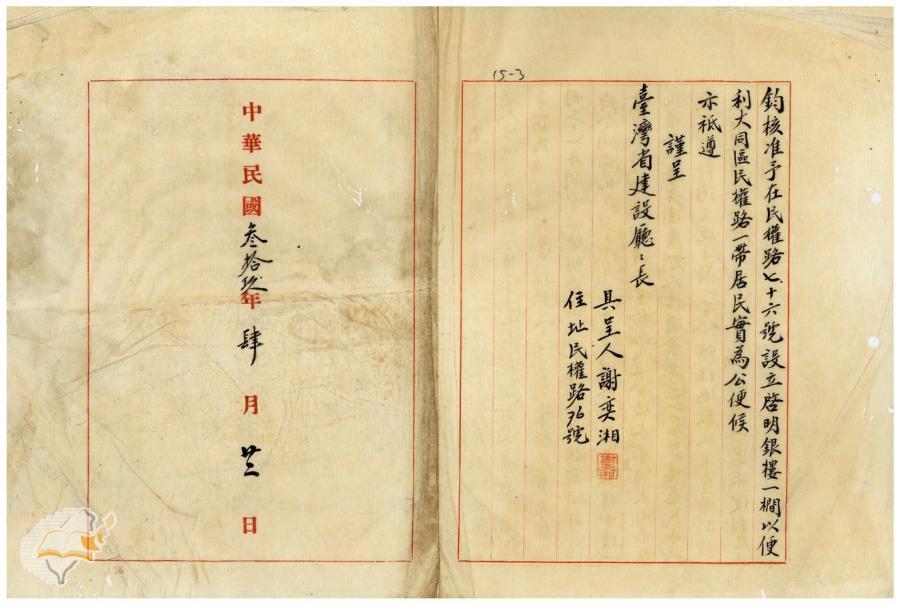 15-3
鈞核准予在民權路七十六號設立啓明銀樓一間以便
利大同區民權路一帶居民實為公便候
示祗遵
謹呈
臺灣省建設廳、長
具呈人謝奕湘
住址民權路76號
中華民國叁拾玖年肆月廿三日